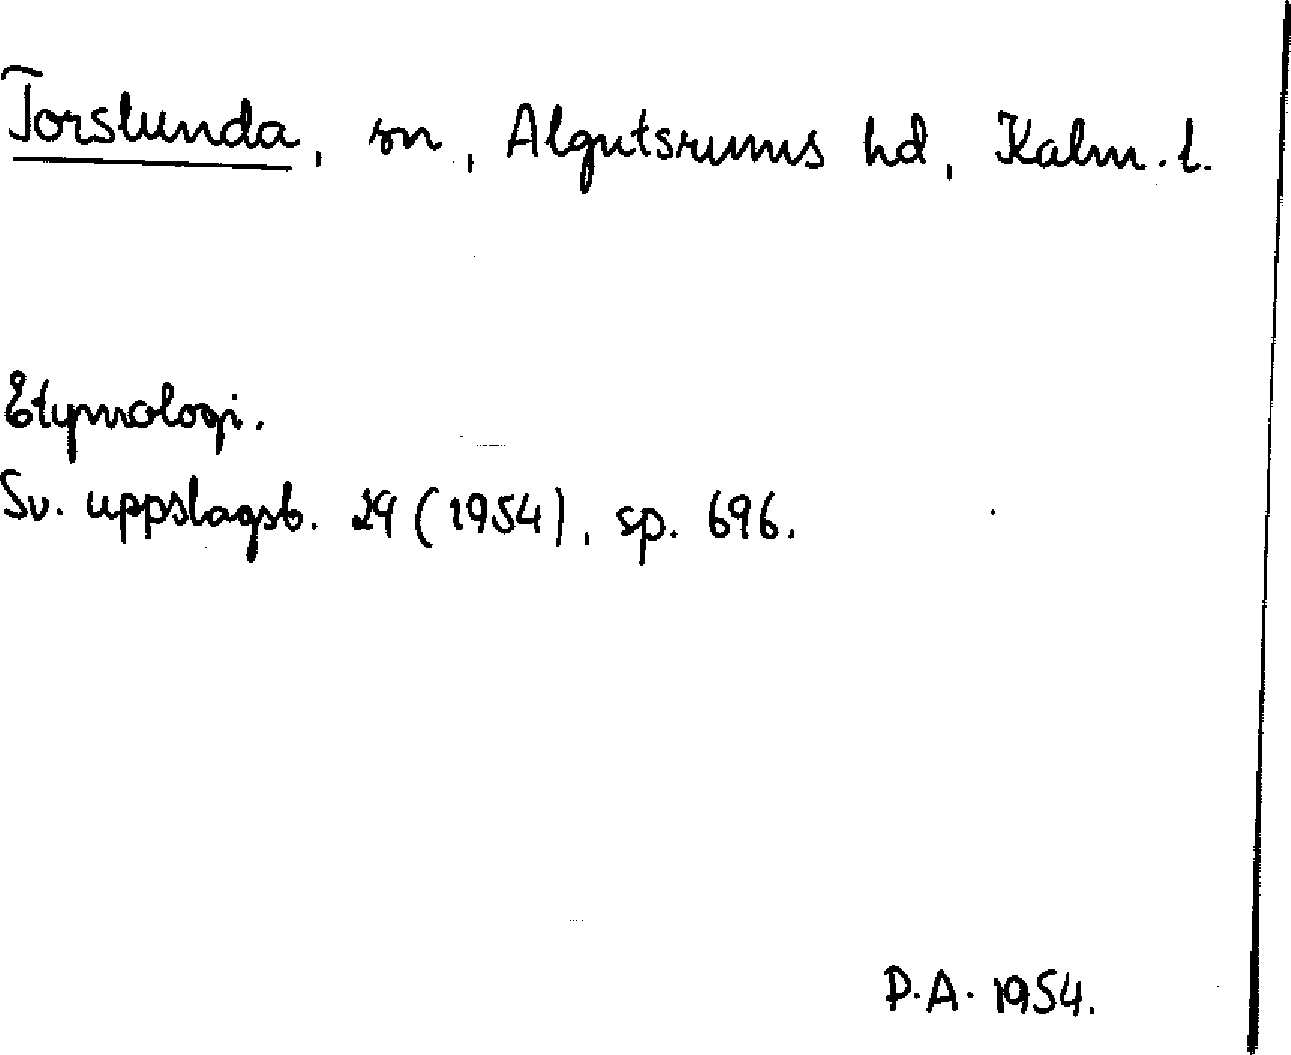 Torslunda, sn, Algutsrums hd, Kalm. l.
Etymologi.
Sv. uppslagsb. 29 (1954), sp. 696.
P.A. 1954.